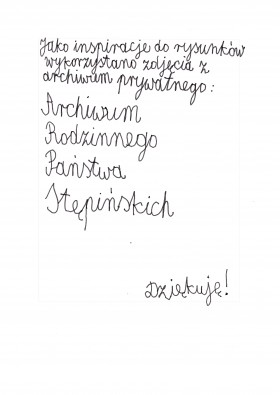 Jako inspiracje do rysunków
wykorzystano zdjęcia z
archiwum prywatnego:
Archiwum
Rodzinnego
Państwa
Stępińskich
Dziękuję!